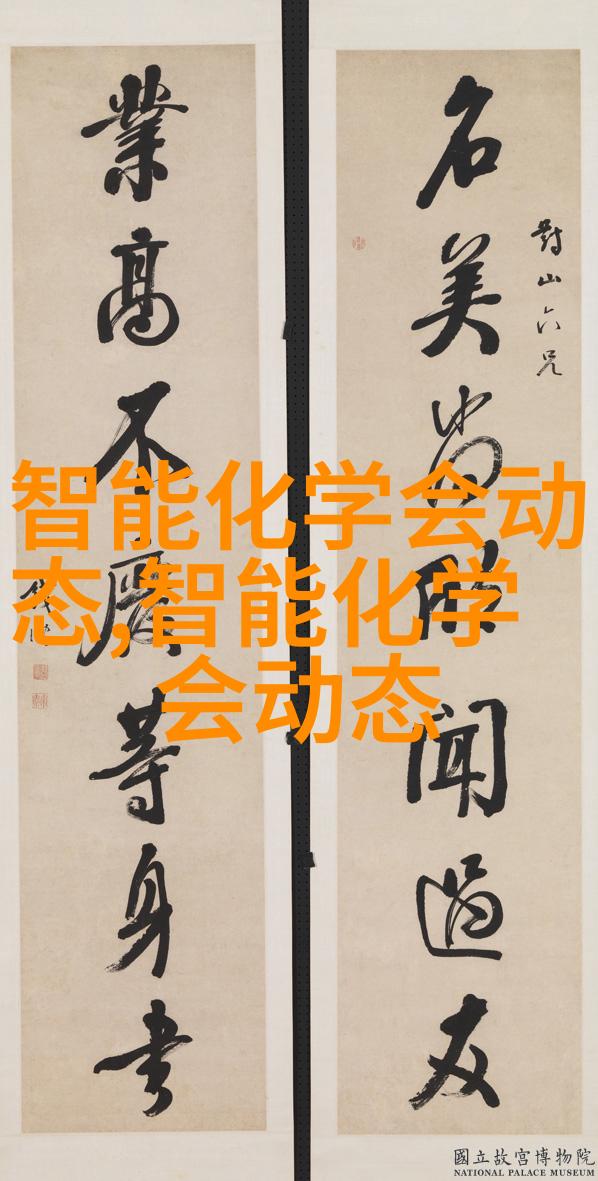 對山六兄
名美尚聞過友
業高不等身書
智能化学会动
态,智能化学
会动态
國立故宮博物院
NATIONAL PALACE MUSEUM